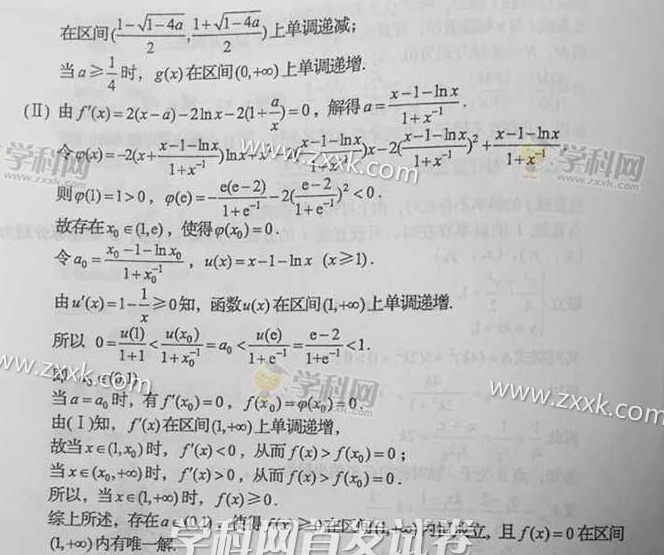 在区间(\frac{1-\sqrt{1-4a}}{2},\frac{1+\sqrt{1-4a}}{2})上单调递减;
当a≥\frac{1}{4}时, g(x)在区间(0,+∞)上单调递增.
(Ⅱ) 由f'(x)=2(x-a)-2lnx-2(1+\frac{a}{x})=0, 解得a=\frac{x-1-lnx}{1+x^{-1}}.
令φ(x)=-2(x+\frac{x-1-lnx}{1+x^{-1}})lnx+x \frac{x-1-lnx}{1+x^{-1}})x-2(\frac{x-1-lnx}{1+x^{-1}})^2+\frac{x-1-lnx}{1+x^{-1}},
则φ(1)=1>0, φ(e)=-\frac{e(e-2)}{1+e^{-1}}-2(\frac{e-2}{1+e^{-1}})^2<0.
故存在x_0∈(1,e), 使得φ(x_0)=0.
令a_0=\frac{x_0-1-lnx_0}{1+x_0^{-1}}, u(x)=x-1-lnx (x≥1).
由u'(x)=1-\frac{1}{x}≥0知, 函数u(x)在区间(1,+∞)上单调递增.
所以 0=\frac{u(1)}{1+1}<\frac{u(x_0)}{1+x_0^{-1}}=a_0<\frac{u(e)}{1+e^{-1}}=\frac{e-2}{1+e^{-1}}<1.
即a_0∈(0,1).
当a=a_0时, 有f'(x_0)=0, f(x_0)=φ(x_0)=0.
由(Ⅰ)知, f'(x)在区间(1,+∞)上单调递增,
故当x∈(1,x_0)时, f'(x)<0, 从而f(x)>f(x_0)=0;
当x∈(x_0,+∞)时, f'(x)>0, 从而f(x)>f(x_0)=0.
所以, 当x∈(1,+∞)时, f(x)≥0.
综上所述, 存在a∈(0,1), 使得f(x)≥0在区间(1,+∞)内恒成立, 且f(x)=0在区间
(1,+∞)内有唯一解.
学科网
www.zxxk.com
学科网
www.zxxk.com
学科网
www.zxxk.com
学科网
www.zxxk.com
学科网首发试卷